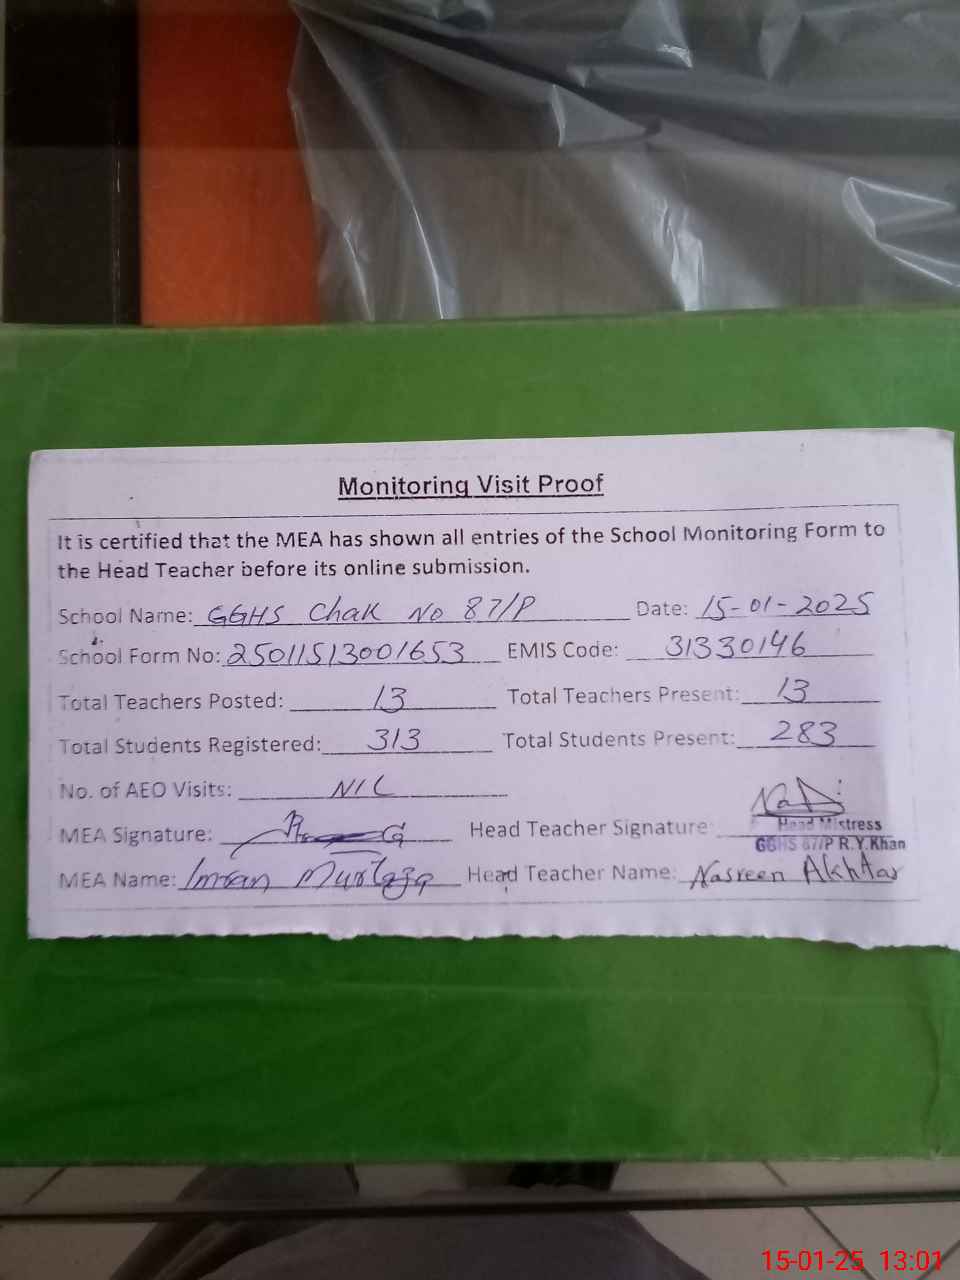 Monitoring Visit Proof
It is certified that the MEA has shown all entries of the School Monitoring Form to
the Head Teacher before its online submission.
School Name: GGHS Chak No 87/P Date: 15-01-2025
School Form No: 25011513001653 EMIS Code: 31330146
Total Teachers Posted: 13 Total Teachers Present: 13
Total Students Registered: 313 Total Students Present: 283
No. of AEO Visits: NIL
MEA Signature: Head Teacher Signature:
Head Mistress
GGHS 87/P R.Y.Khan
MEA Name: Imran Murtaza Head Teacher Name: Nasreen Akhtar
15-01-25 13:01